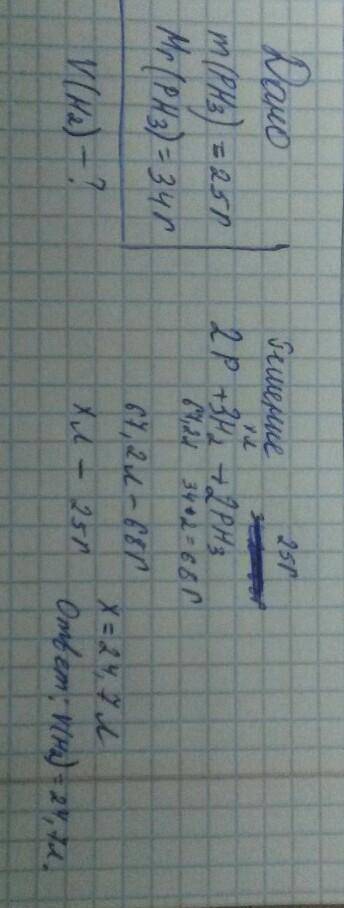 Дано
m(PH3) = 25г
Mr(PH3) = 34г
V(H2) - ?
Решение
хл 25г
2P + 3H2 + 2PH3
67,2л 34*2 = 68г
67,2л - 68г
хл - 25г
х = 24,7л
Ответ: V(H2) = 24,7л.